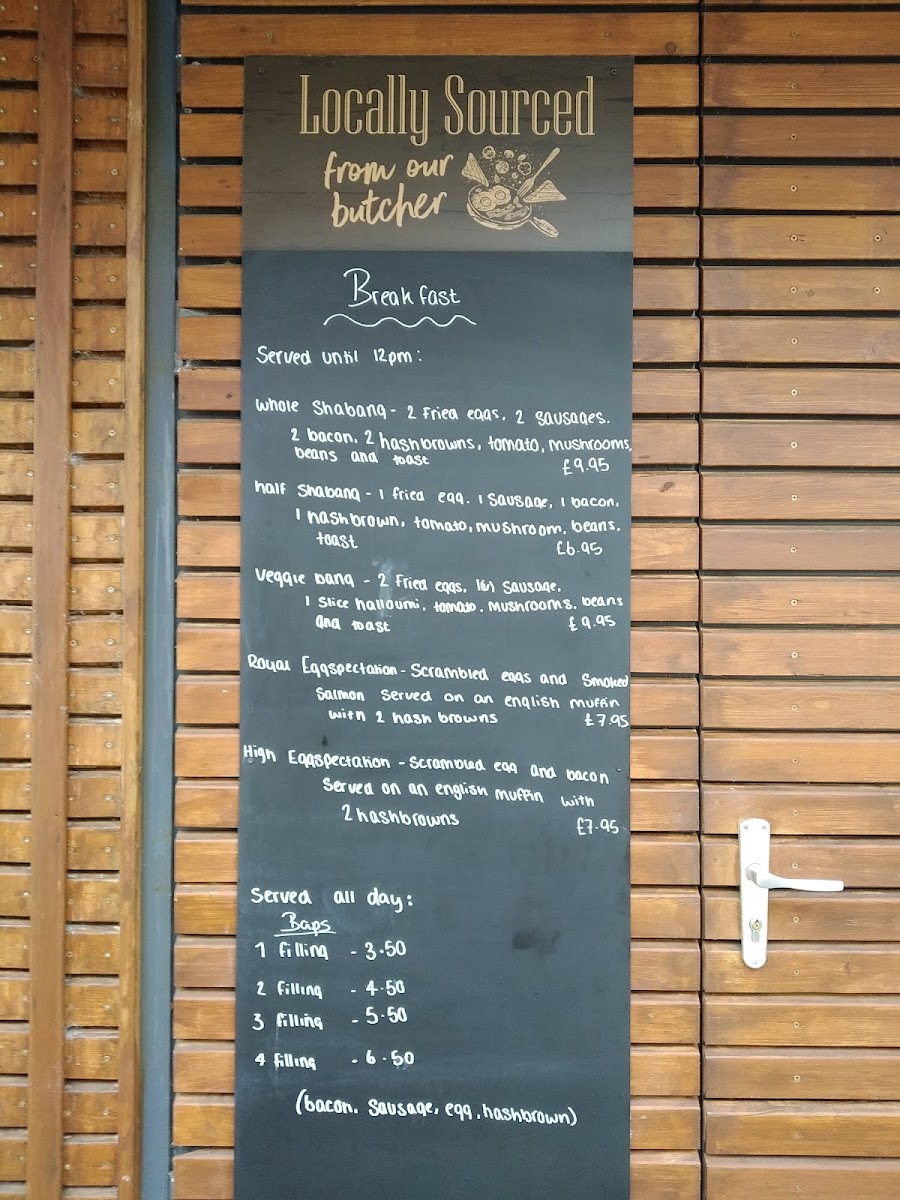 Locally Sourced
from our
butcher
Breakfast
Served until 12pm:
Whole Shabang - 2 Fried eggs, 2 Sausages.
2 bacon, 2 hashbrowns, tomato, mushrooms,
beans and toast
£9.95
half Shabang - 1 fried egg. 1 Sausage, 1 bacon,
1 hashbrown, tomato, mushroom, beans,
toast
£6.95
Veggie bang - 2 Fried eggs, Sausage,
1 Slice halloumi, tomato, mushrooms. beans
and toast
£9.95
Royal Eggspectation - Scrambled eggs and Smoked
Salmon Served on an english muffin
with 2 hash browns
£7.95
High Eggspectation - Scrambled egg and bacon
Served on an english muffin with
2 hashbrowns
£7.95
Served all day:
Baps
1 filling - 3.50
2 filling - 4.50
3 filling - 5.50
4 filling - 6.50
(bacon, Sausage, egg, hashbrown)